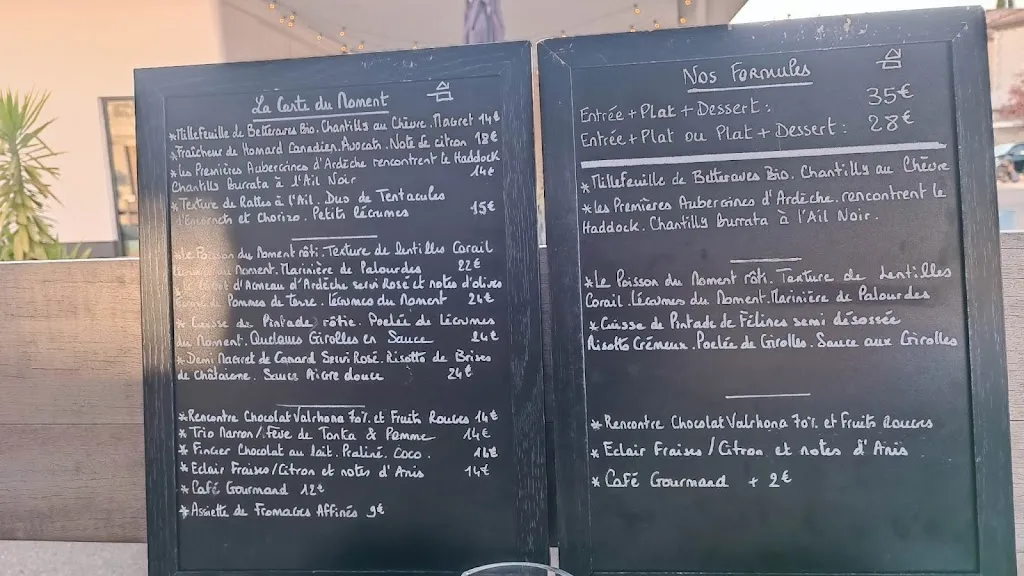 La Carte du Moment
*Millefeuille de Betteraves Bio. Chantilly au Chèvre. Magret 14€
*Fraîcheur de Homard Canadien. Avocats. Note de citron 18€
*Les Premières Aubergines d'Ardèche rencontrent le Haddock
Chantilly Burrata à l'Ail Noir 14€
*Texture de Rattes à l'Ail. Duo de Tentacules
d'Encornets et Chorizo. Petits légumes 15€
*Le Poisson du Moment rôti. Texture de Lentilles Corail
du Moment. Marinière de Palourdes 22€
d'Agneau d'Ardèche servi Rosé et notes d'olives
de Pommes de Terre. Légumes du Moment 24€
*Cuisse de Pintade rôtie. Poelée de Légumes
du Moment. Quelques Girolles en Sauce 24€
*Demi Magret de Canard Servi Rosé. Risotto de Brises
de Châtaigne. Sauce Aigre douce 24€
*Rencontre Chocolat Valrhona 70%. et Fruits Rouges 14€
*Trio Marron/Fève de Tonka & Pomme 14€
*Finger Chocolat au lait. Praliné. Coco. 14€
*Eclair Fraises/Citron et notes d'Anis 14€
*Café Gourmand 12€
*Assiette de Fromages Affinés 9€
Nos Formules
Entrée + Plat + Dessert : 35€
Entrée + Plat ou Plat + Dessert : 28€
*Millefeuille de Betteraves Bio. Chantilly au Chèvre
*Les Premières Aubergines d'Ardèche. rencontrent le
Haddock. Chantilly Burrata à l'Ail Noir.
*Le Poisson du Moment rôti. Texture de Lentilles
Corail. Légumes du Moment. Marinière de Palourdes
*Cuisse de Pintade de Félines semi désossée
Risotto Crémeux. Poelée de Girolles. Sauce aux Girolles
*Rencontre Chocolat Valrhona 70%. et Fruits Rouges
*Eclair Fraises/Citron et notes d'Anis
*Café Gourmand + 2€